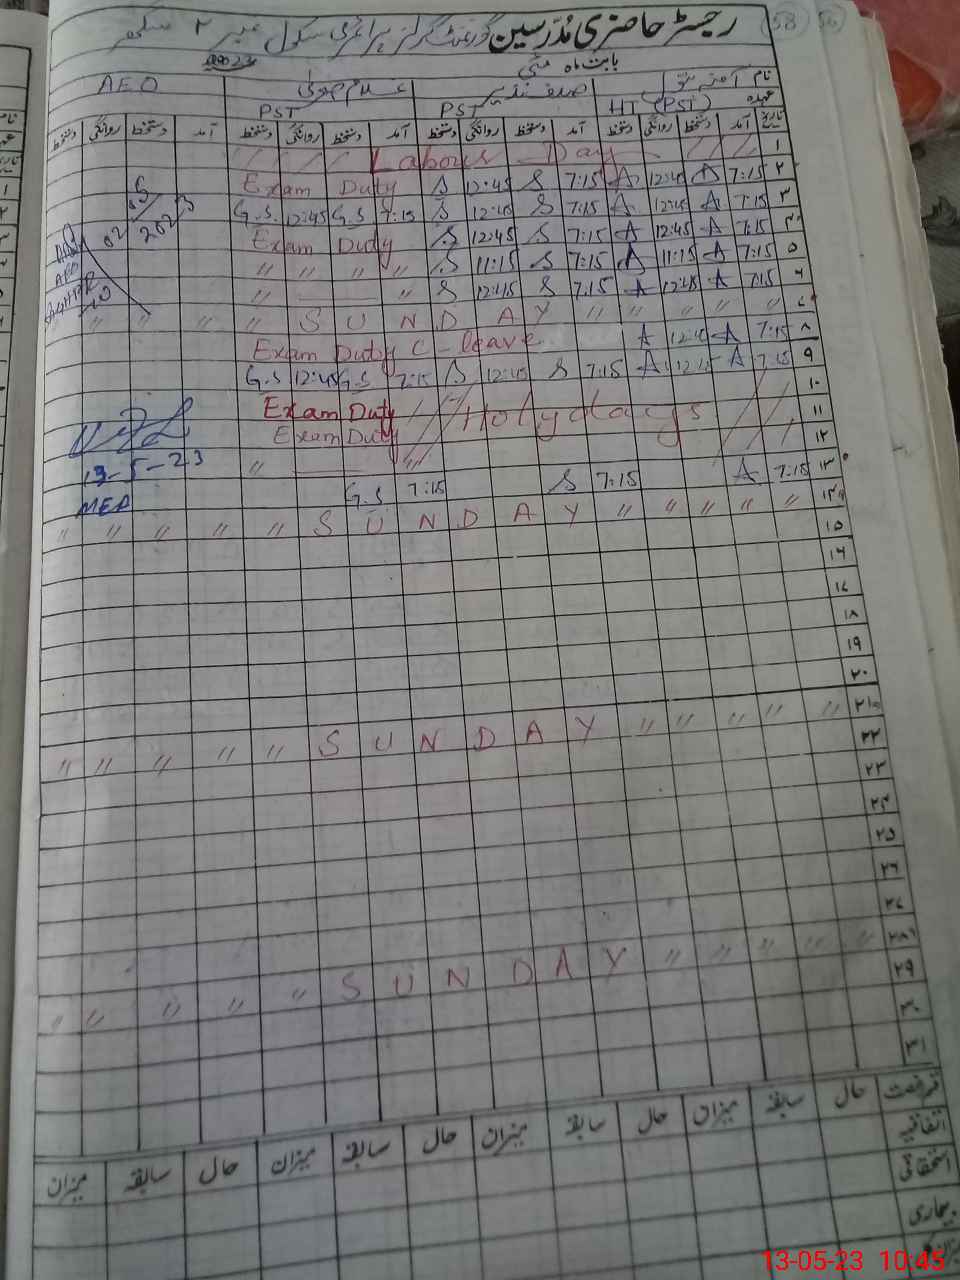 رجسٹر حاضری مُدرسین گورنمنٹ گرلز پرائمری سکول نمبر ۲ 58
بابت ماہ مئی 2023
نام صدف نذیر غلام صغریٰ AEO
عہدہ HT (PST) PST PST
تاریخ آمد دستخط روانگی دستخط آمد دستخط روانگی دستخط آمد دستخط روانگی دستخط آمد دستخط روانگی دستخط
۱ Labour Day
۲ 7:15 A 12:45 A 7:15 S 12:45 S Exam Duty
۳ 7:15 A 12:45 A 7:15 S 12:45 S 7:15 G.S 12:45 G.S
۴ 7:15 A 12:45 A 7:15 S 12:45 S Exam Duty
۵ 7:15 A 11:15 A 7:15 S 11:15 S " " " "
۶ 7:15 A 12:45 A 7:15 S 12:45 S " "
02 05 2023
AEO
۷ " " " " " S U N D A Y " " " "
۸ 7:15 A 12:45 A C-leave Exam Duty
۹ 7:15 A 12:45 A 7:15 S 12:45 S 7:15 G.S 12:45 G.S
۱۰ Holydays Exam Duty
۱۱ Exam Duty
۱۲ " "
۱۳ 7:15 A 7:15 S 7:15 G.S
13-5-23
MEA
۱۴ " " " " " S U N D A Y " " " " "
۱۵
۱۶
۱۷
۱۸
۱۹
۲۰
۲۱ " " " " " S U N D A Y " " " " "
۲۲
۲۳
۲۴
۲۵
۲۶
۲۷
۲۸ " " " " " S U N D A Y " " " " "
۲۹
۳۰
۳۱
فرصت حال سابقہ میزان حال سابقہ میزان حال سابقہ میزان حال سابقہ میزان
اتفاقیہ
استحقاقی
بیماری
13-05-23 10:45